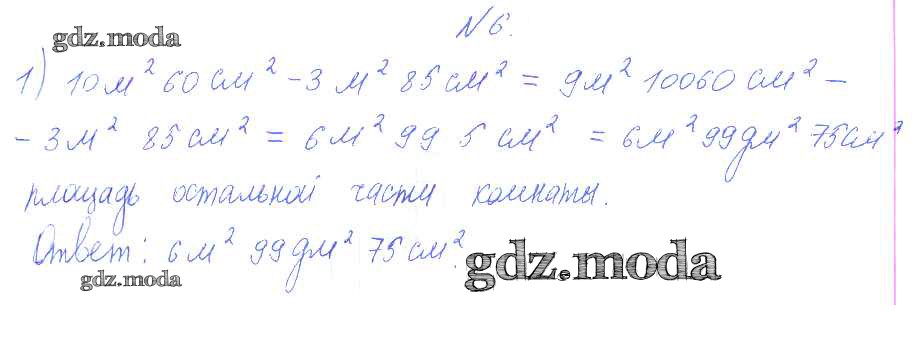 №6.
gdz.moda
1) 10 м² 60 см² - 3 м² 85 см² = 9 м² 10060 см² -
- 3 м² 85 см² = 6 м² 99 5 см² = 6 м² 99 дм² 75 см²
площадь остальной части комнаты.
Ответ: 6 м² 99 дм² 75 см².
gdz.moda
gdz.moda